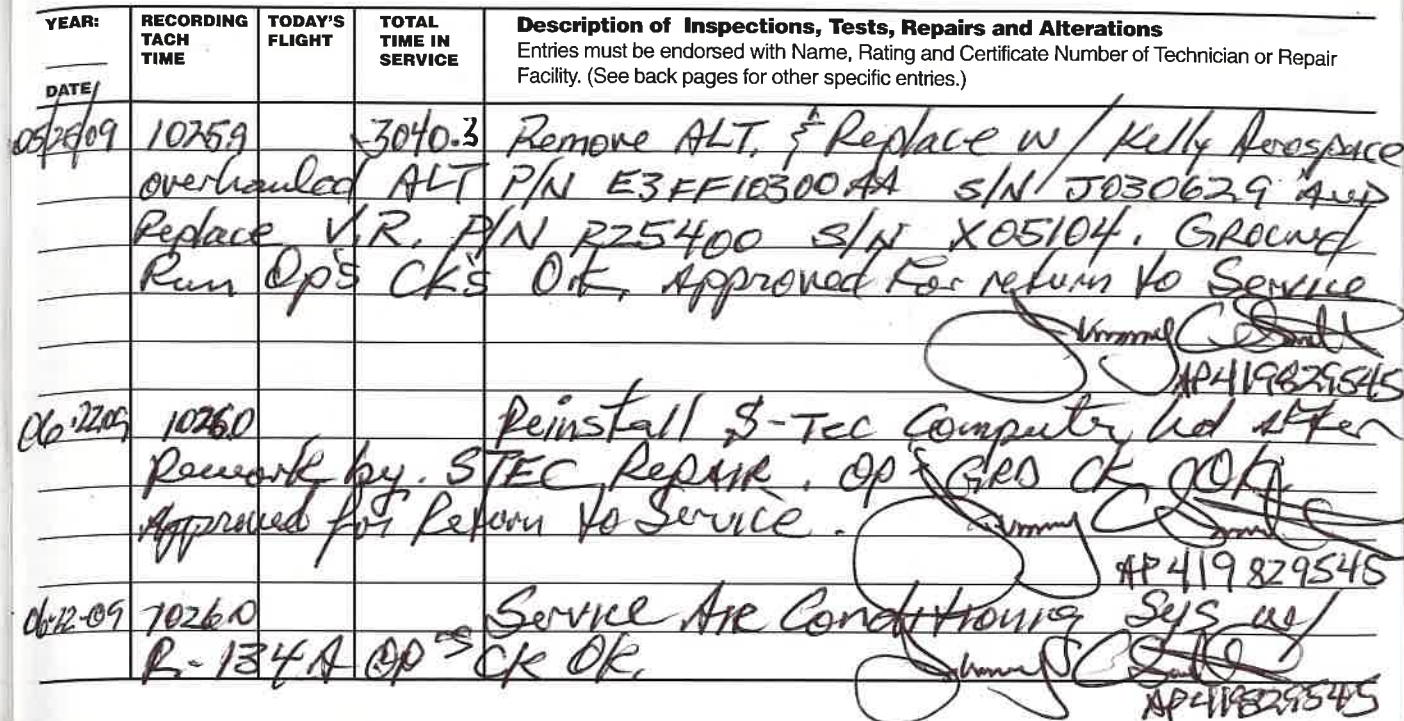 YEAR: RECORDING TACH TIME TODAY'S FLIGHT TOTAL TIME IN SERVICE Description of Inspections, Tests, Repairs and Alterations
Entries must be endorsed with Name, Rating and Certificate Number of Technician or Repair
Facility. (See back pages for other specific entries.)
DATE
05/28/09 10259 3040.3 Remove ALT, & Replace w/ Kelly Aerospace
overhauled ALT P/N E3FF10300AA S/N J030629 AND
Replace V.R. P/N R25400 S/N X05104. GROUND
Run Op's CK's O.K. Approved For return to Service
Jimmy C
AP419829545
06-22-09 10260 Reinstall S-Tec Computer after
Rework by STEC REPAIR. OP'S GRD CK OK.
Approved for Return to Service.
Jimmy C
AP419829545
06-12-09 10260 Service Air Conditioning Sys w/
R-134A OP'S CK OK.
Jimmy C
AP419829545